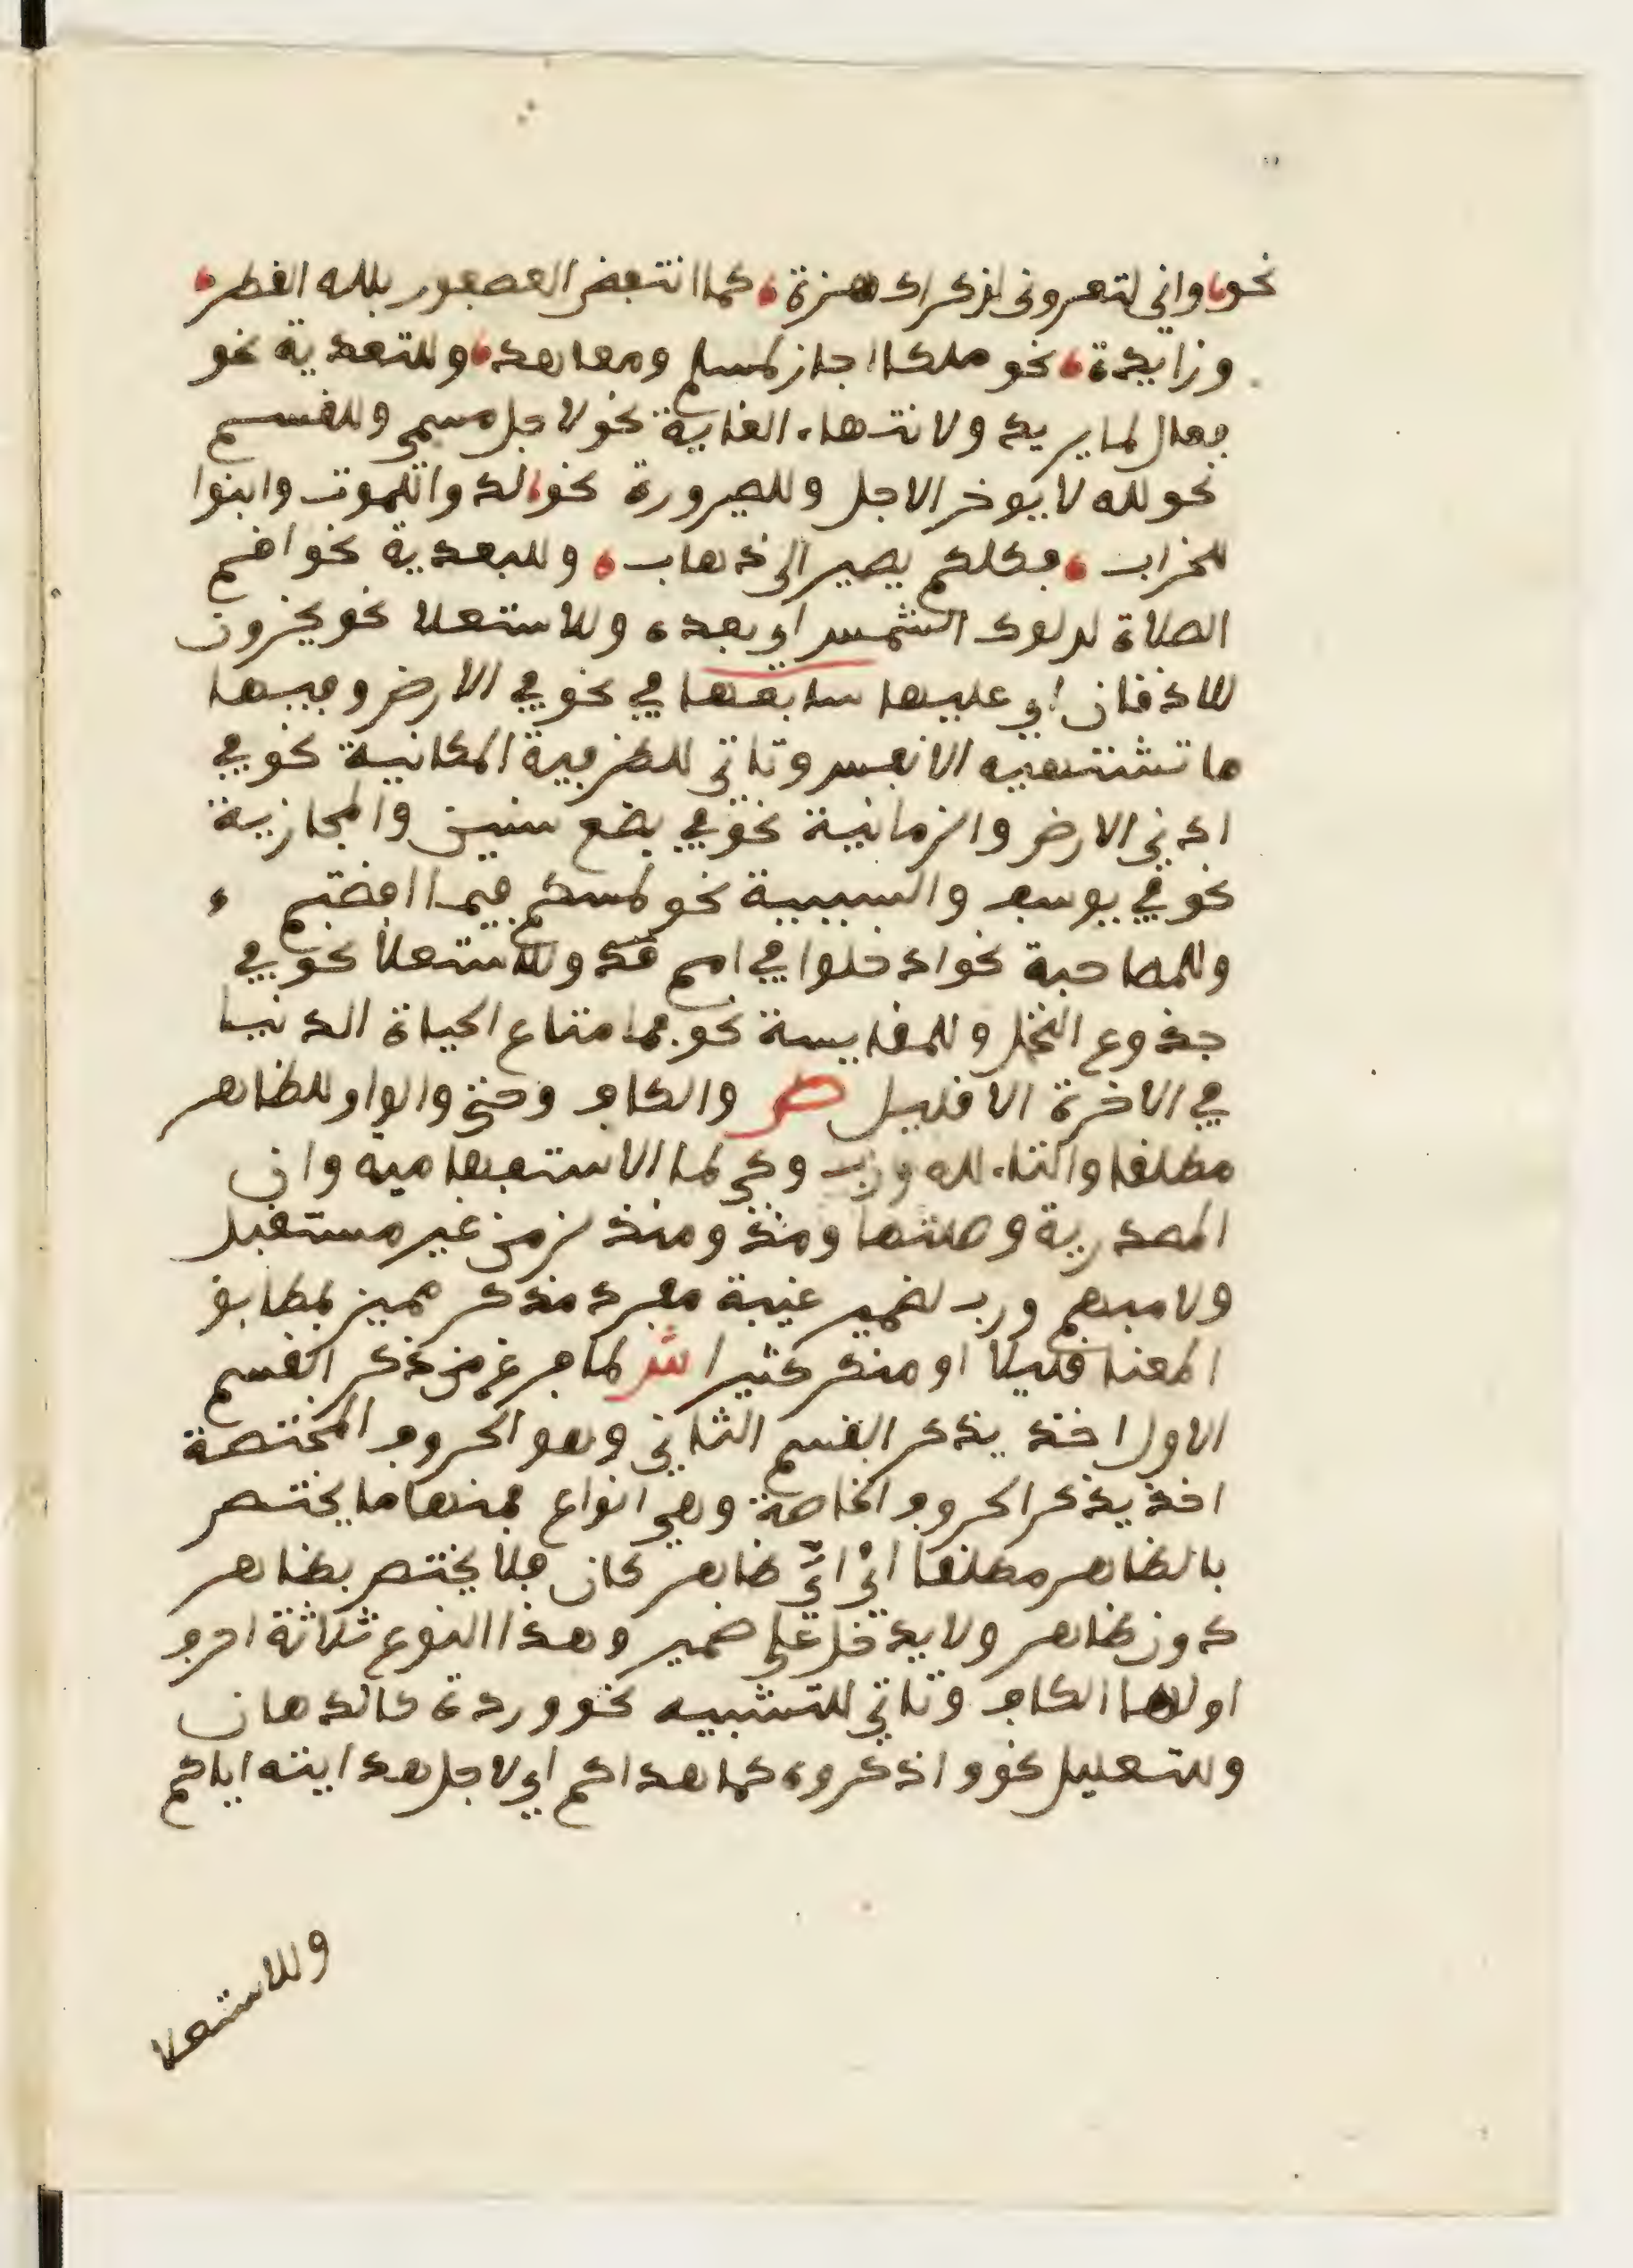 نحو، واني لتعروني لذكراك هزة، كما انتفض العصفور بلله القطر،
وزايدة، نحو ملكا اجاز لمسلم ومعاهد، وللتعدية نحو
فعال لما يريد ولانتهاء الغاية نحو لاجل مسمى وللقسم
نحو لله لا يوخر الاجل وللصيرورة نحو، لدوا للموت وابنوا
للخراب، فكلكم يصير الى ذهاب، وللبعدية نحو اقم
الصلاة لدلوك الشمس اي بعده وللاستعلا نحو يخرون
للاذقان اي عليها سابعها في نحو في الارض وفيها
ما تشتهيه الانفس وتاتي للظرفية المكانية نحو في
ادنى الارض والزمانية نحو في بضع سنين والمجازية
نحو في يوسف والسببية نحو لمسكم فيما افضتم
وللمصاحبة نحو ادخلوا في امم قد وللاستعلا نحو في
جذوع النخل وللمقايسة نحو فما متاع الحياة الدنيا
في الاخرة الا قليل ص والكاف وحتى والواو للظاهر
مطلقا والتاء لله ورب وكي لما الاستفهامية وان
المصدرية وصلتها ومذ ومنذ لزمن غير مستقبل
ولا مبهم ورب لضمير غيبة مفرد مذكر مميز بمطابق
المعنا قليلا او منكر كثيرا ش لما فرغ من ذكر القسم
الاول اخذ يذكر القسم الثاني وهو الحروف المختصة
اخذ يذكر الحروف الخاصة وهي انواع فمنها ما يختص
بالظاهر مطلقا اي ايّ ظاهر كان فلا يختص بظاهر
دون ظاهر ولا يدخل على ضمير وهذا النوع ثلاثة احرف
اولها الكاف وتاتي للتشبيه نحو وردة كالدهان
وللتعليل نحو واذكروه كما هداكم اي لاجل هدايته اياكم
وللاستعلا